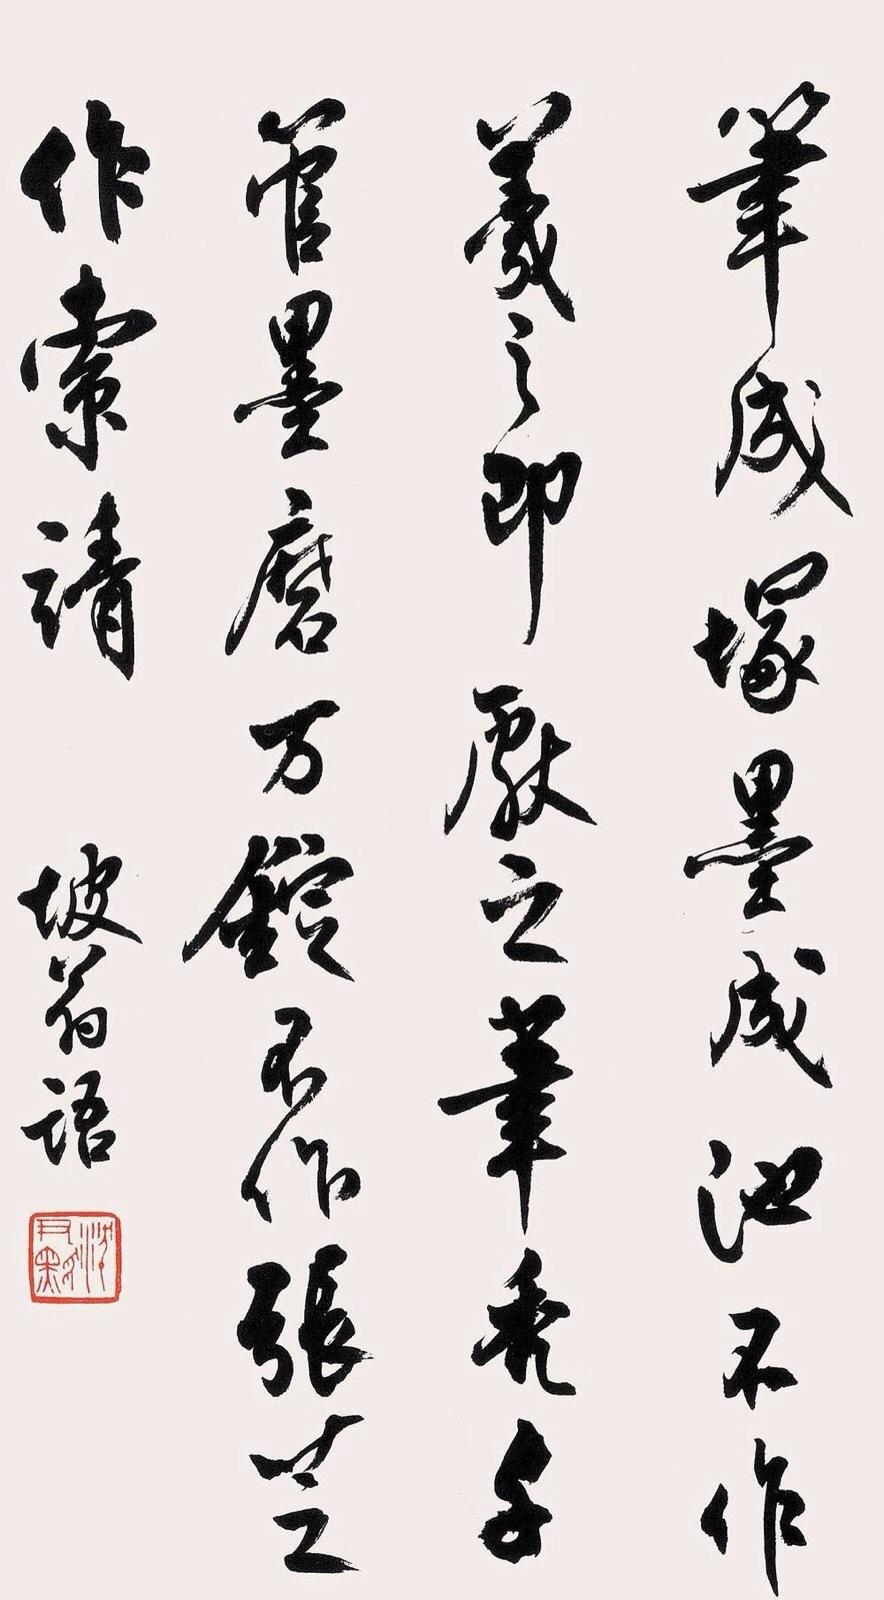 筆成塚墨成池不作
羲之即獻之筆禿千
管墨磨万錠不作張芝
作索靖
坡翁語